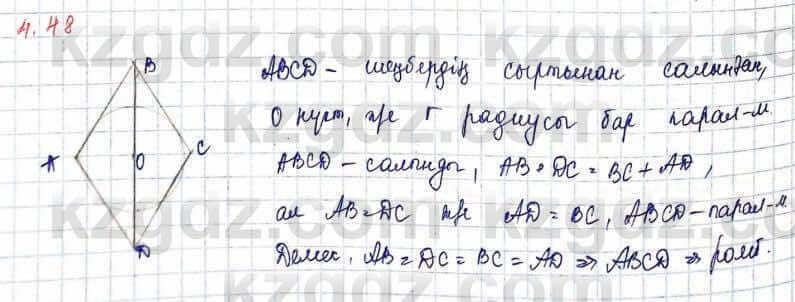 4.48
B
A
O
C
D
ABCD - шеңбердің сыртынан салынған,
O нүкт, және r радиусы бар парал-м.
ABCD - салынды, AB + DC = BC + AD,
ал AB = DC және AD = BC, ABCD - парал-м
Демек, AB = DC = BC = AD => ABCD => ромб.
kzgdz.com